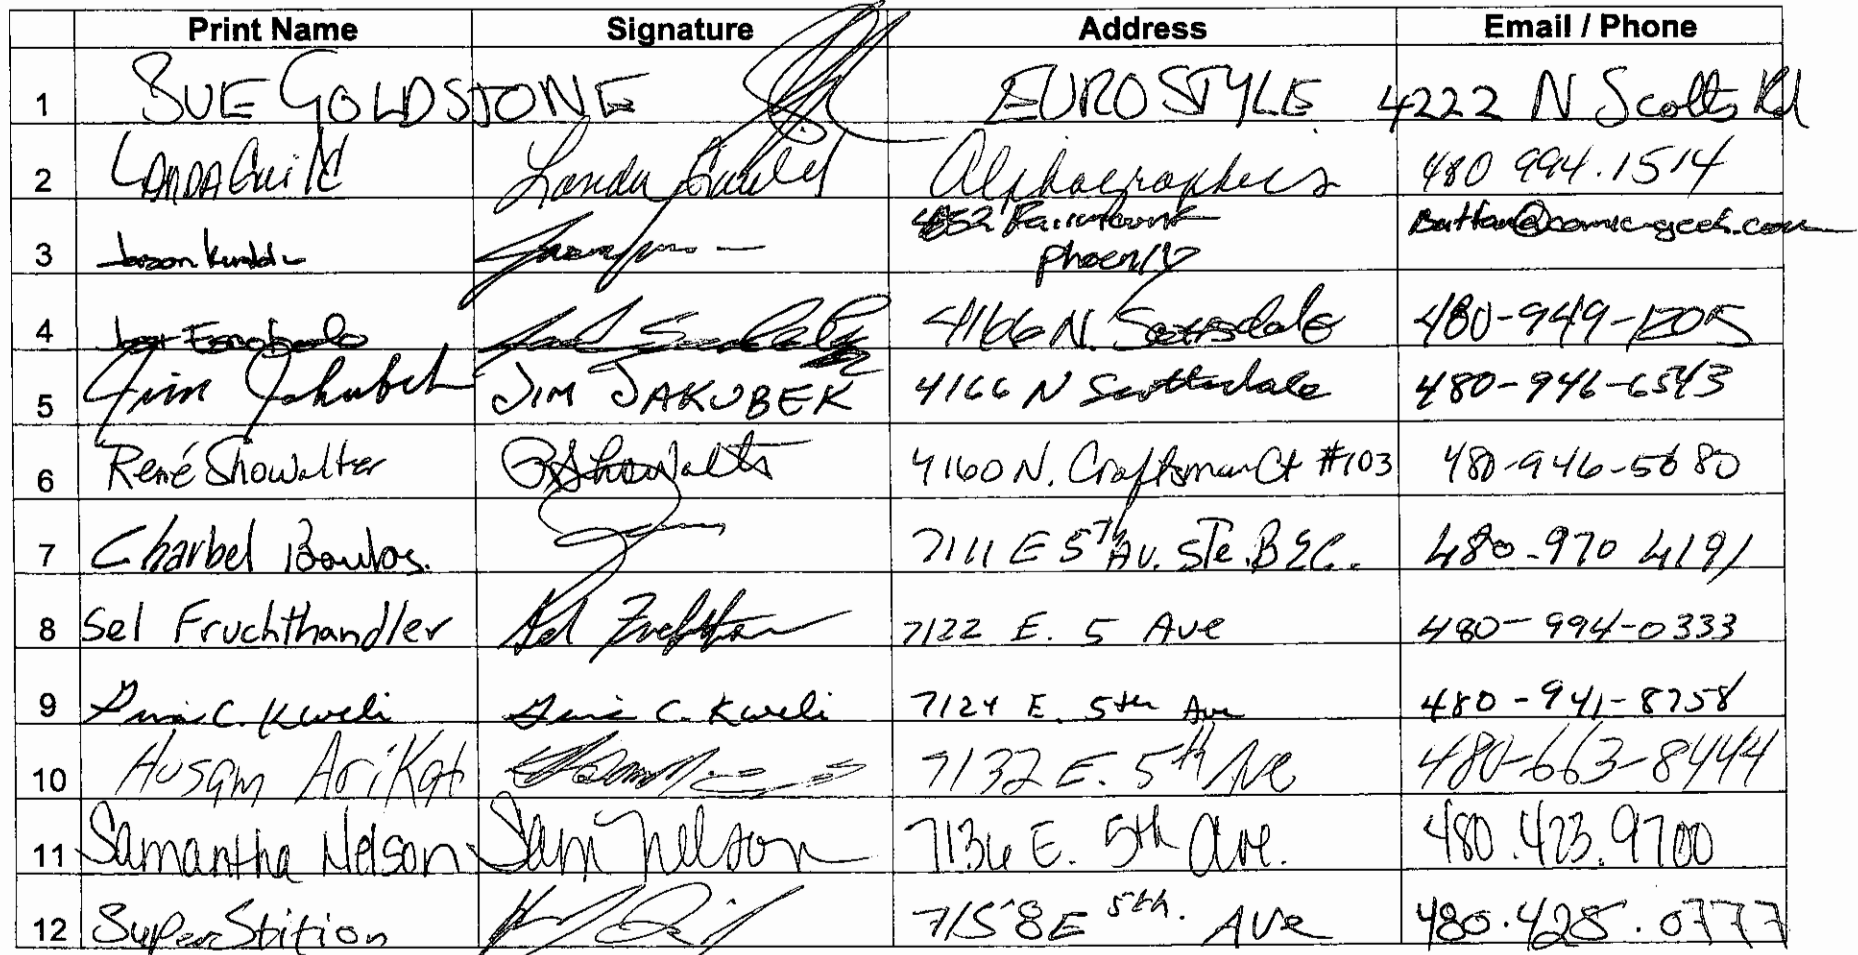 Print Name Signature Address Email / Phone
1 SUE GOLDSTONE EUROSTYLE 4222 N Scotts Rd
2 LANDA Guild Landa Guild Alphagraphics 480 994.1514
3 Jason 4852 Fairmount
Phoenix
4 4166 N. Scottsdale 480-949-1205
5 Jim Jakubek JIM JAKUBEK 4166 N Scottsdale 480-946-6543
6 René Showalter RShowalter 4160 N. Craftsman Ct #103 480-946-5680
7 Charbel Boulos. 7111 E 5th AV. STe. B &C.. 480-970 4191
8 Sel Fruchthandler Sel 7122 E. 5 Ave 480-994-0333
9 C. Kweli C. Kweli 7124 E. 5th Ave 480-941-8758
10 Husam AriKat 7132 E. 5th Ave 480-663-8444
11 Samantha Nelson Sam Nelson 7136 E. 5th Ave. 480.423.9700
12 SuperStition 7158 E 5th. AVe 480.428.0777